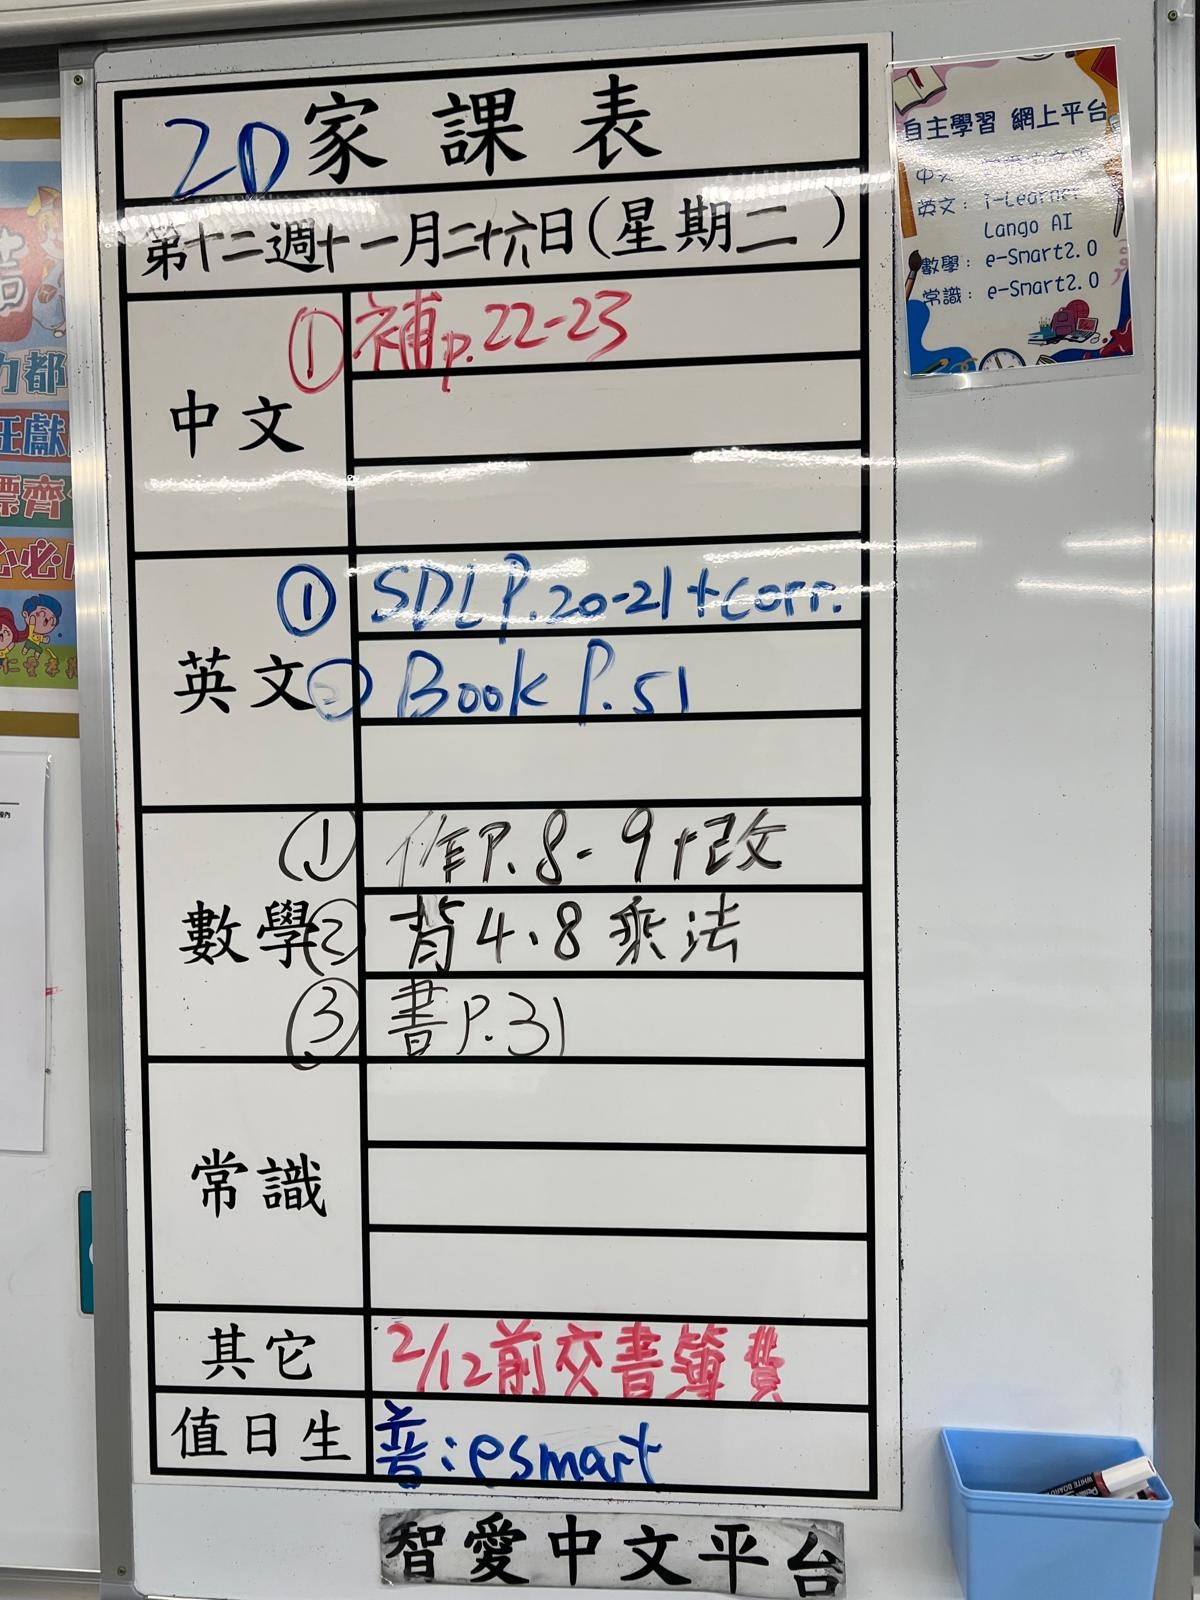 2D 家課表
第十二週十一月二十六日(星期二)
中文
① 補p.22-23
英文
① SDL P.20-21+corr.
② Book P.51
數學
① 作P.8-9+改
② 背4、8乘法
③ 書P.31
常識
其它
2/12前交書簿費
值日生
普:esmart
智愛中文平台
自主學習 網上平台
中文
英文: i-Learner
Lango AI
數學: e-Smart2.0
常識: e-Smart2.0
力都
任獻
標齊
心必
仁愛孝
WHITE BOARD